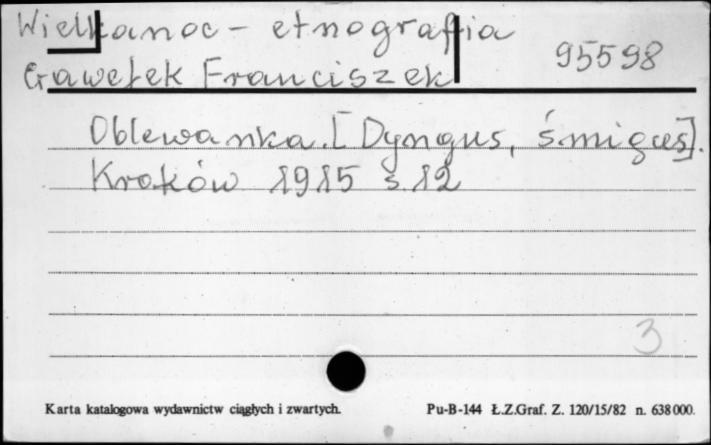 Wielkanoc - etnografia
95598
Gawełek Franciszek
Oblewanka. [Dyngus, śmigus].
Kraków 1915 s. 12
3
Karta katalogowa wydawnictw ciągłych i zwartych.
Pu-B-144 Ł.Z.Graf. Z. 120/15/82 n. 638000.